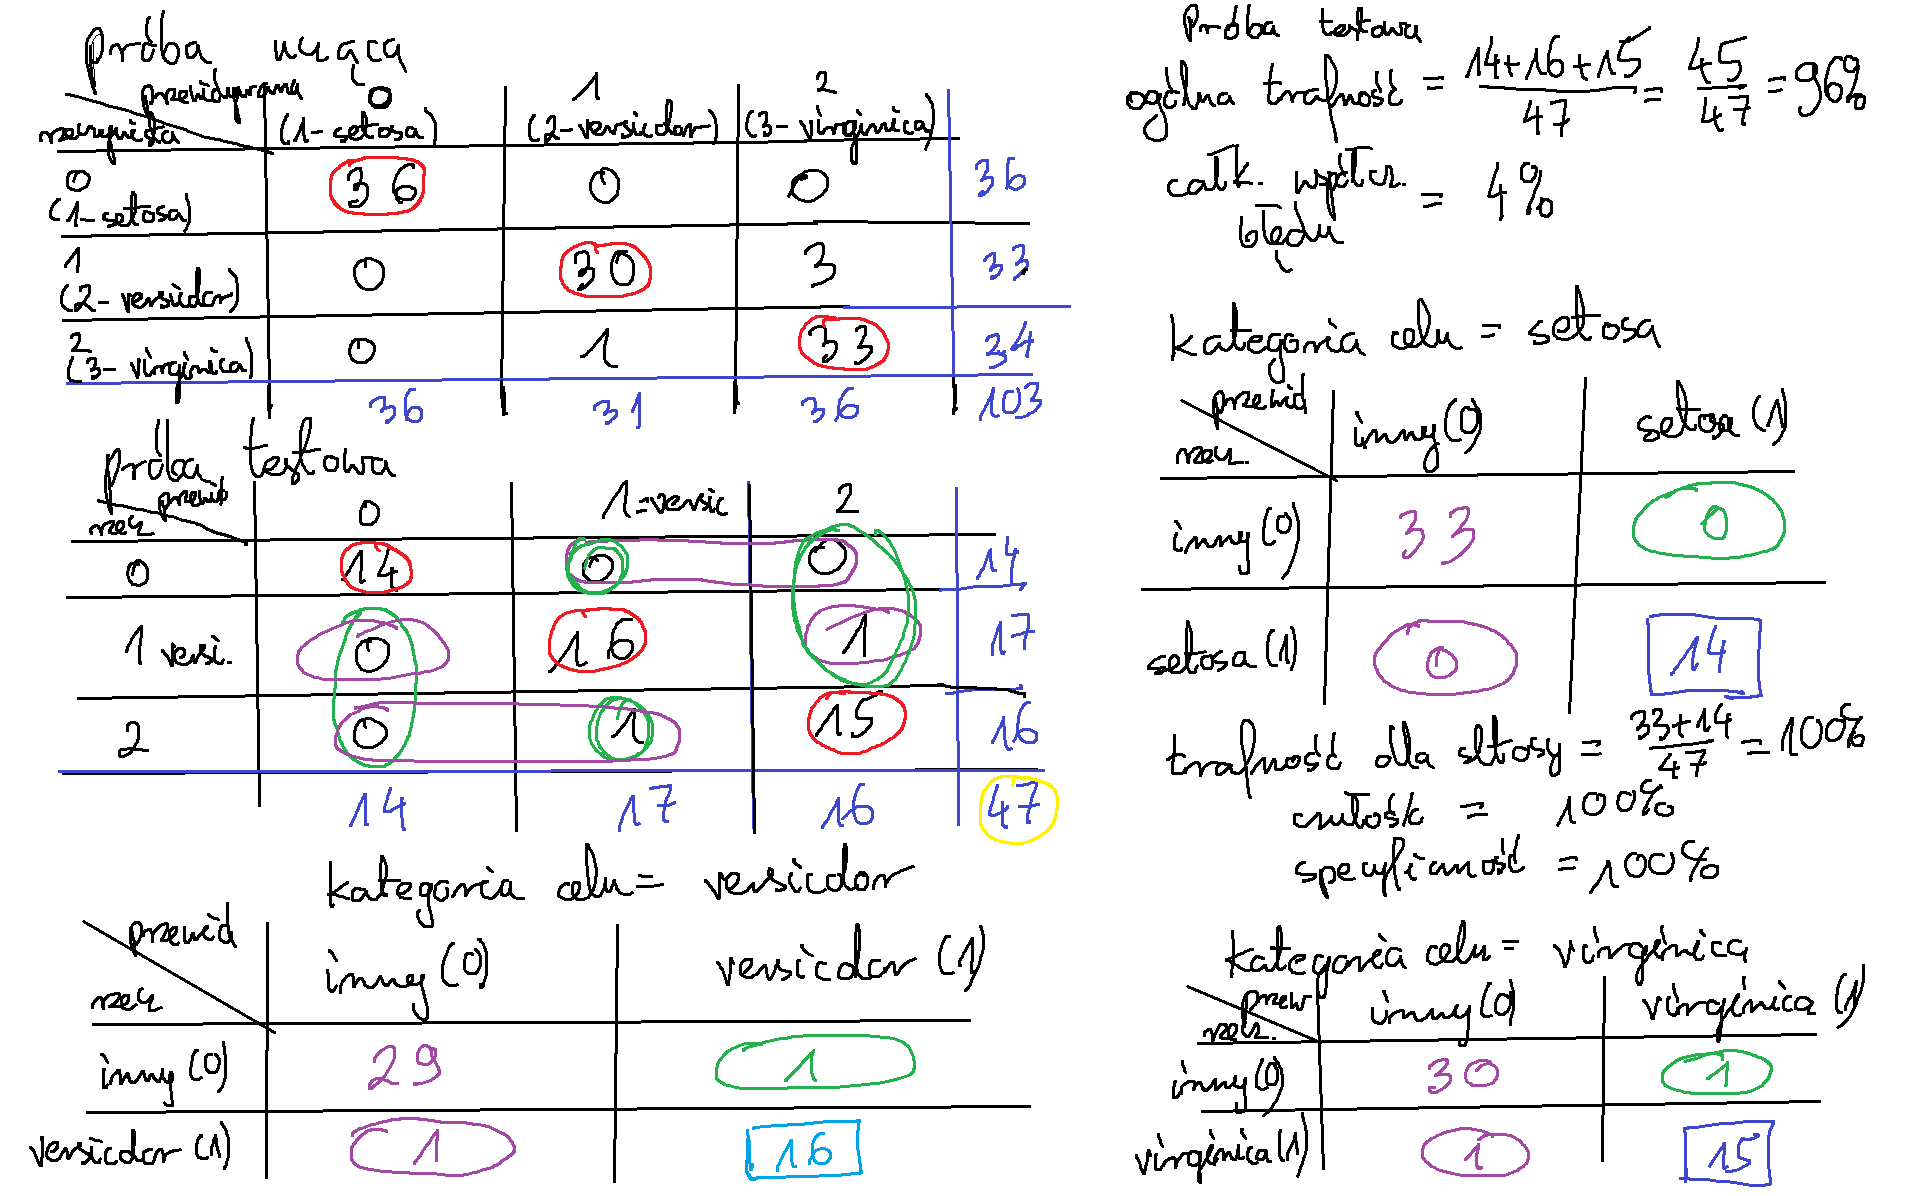 próba ucząca
przewidywana 0 1 2
rzeczywista (1-setosa) (2-versicolor) (3-virginica)
0 (1-setosa) 36 0 0 36
1 (2-versicolor) 0 30 3 33
2 (3-virginica) 0 1 33 34
36 31 36 103
próba testowa
przewid 0 1=versic 2
rzecz
0 14 0 0 14
1 versi. 0 16 1 17
2 0 1 15 16
14 17 16 47
kategoria celu = versicolor
przewid inny (0) versicolor (1)
rzecz
inny (0) 29 1
versicolor (1) 1 16
Próba testowa
ogólna trafność = 14+16+15 / 47 = 45 / 47 = 96%
całk. współcz. błędu = 4%
kategoria celu = setosa
przewid inny (0) setosa (1)
rzecz.
inny (0) 33 0
setosa (1) 0 14
trafność dla setosy = 33+14 / 47 = 100%
czułość = 100%
specyficzność = 100%
kategoria celu = virginica
przew inny (0) virginica (1)
rzecz.
inny (0) 30 1
virginica (1) 1 15